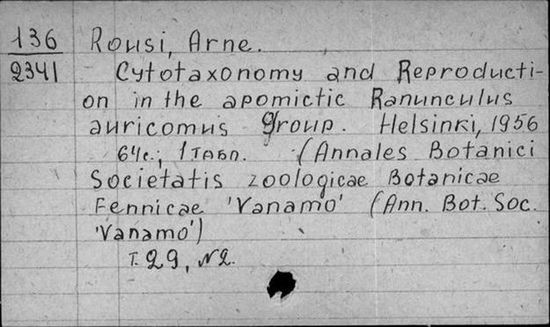 136 Rousi, Arne.
2341 Cytotaxonomy and Reproducti-
on in the apomictic Ranunculus
auricomus group. Helsinki, 1956
64с., 1 табл. (Annales Botanici
Societatis zoologicae Botanicae
Fennicae 'Vanamo' (Ann. Bot. Soc.
'Vanamo')
Т. 29, №2.